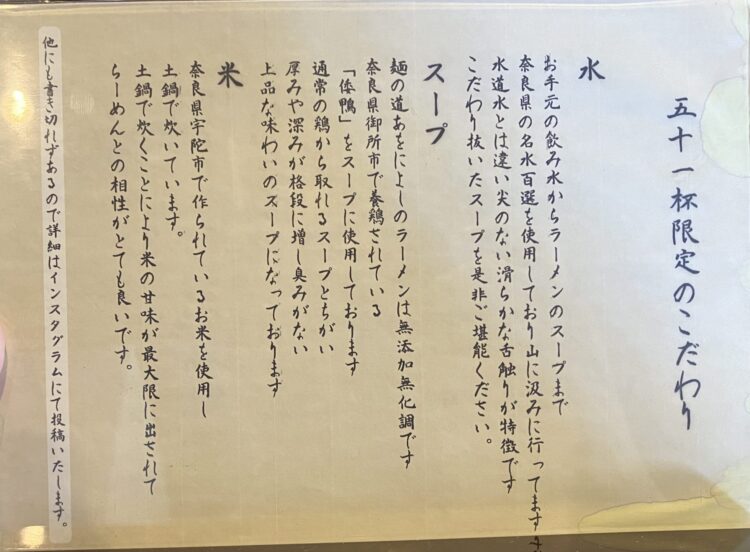 五十一杯限定のこだわり
水
お手元の飲み水からラーメンのスープまで
奈良県の名水百選を使用しており山に汲みに行ってます
水道水とは違い尖のない滑らかな舌触りが特徴です
こだわり抜いたスープを是非ご堪能ください。
スープ
麺の道あをによしのラーメンは無添加無化調です
奈良県御所市で養鶏されている
「倭鴨」をスープに使用しております
通常の鶏から取れるスープとちがい
厚みや深みが格段に増し臭みがない
上品な味わいのスープになっております
米
奈良県宇陀市で作られているお米を使用し
土鍋で炊いています。
土鍋で炊くことにより米の甘味が最大限に出されて
らーめんとの相性がとても良いです。
他にも書き切れずあるので詳細はインスタグラムにて投稿いたします。